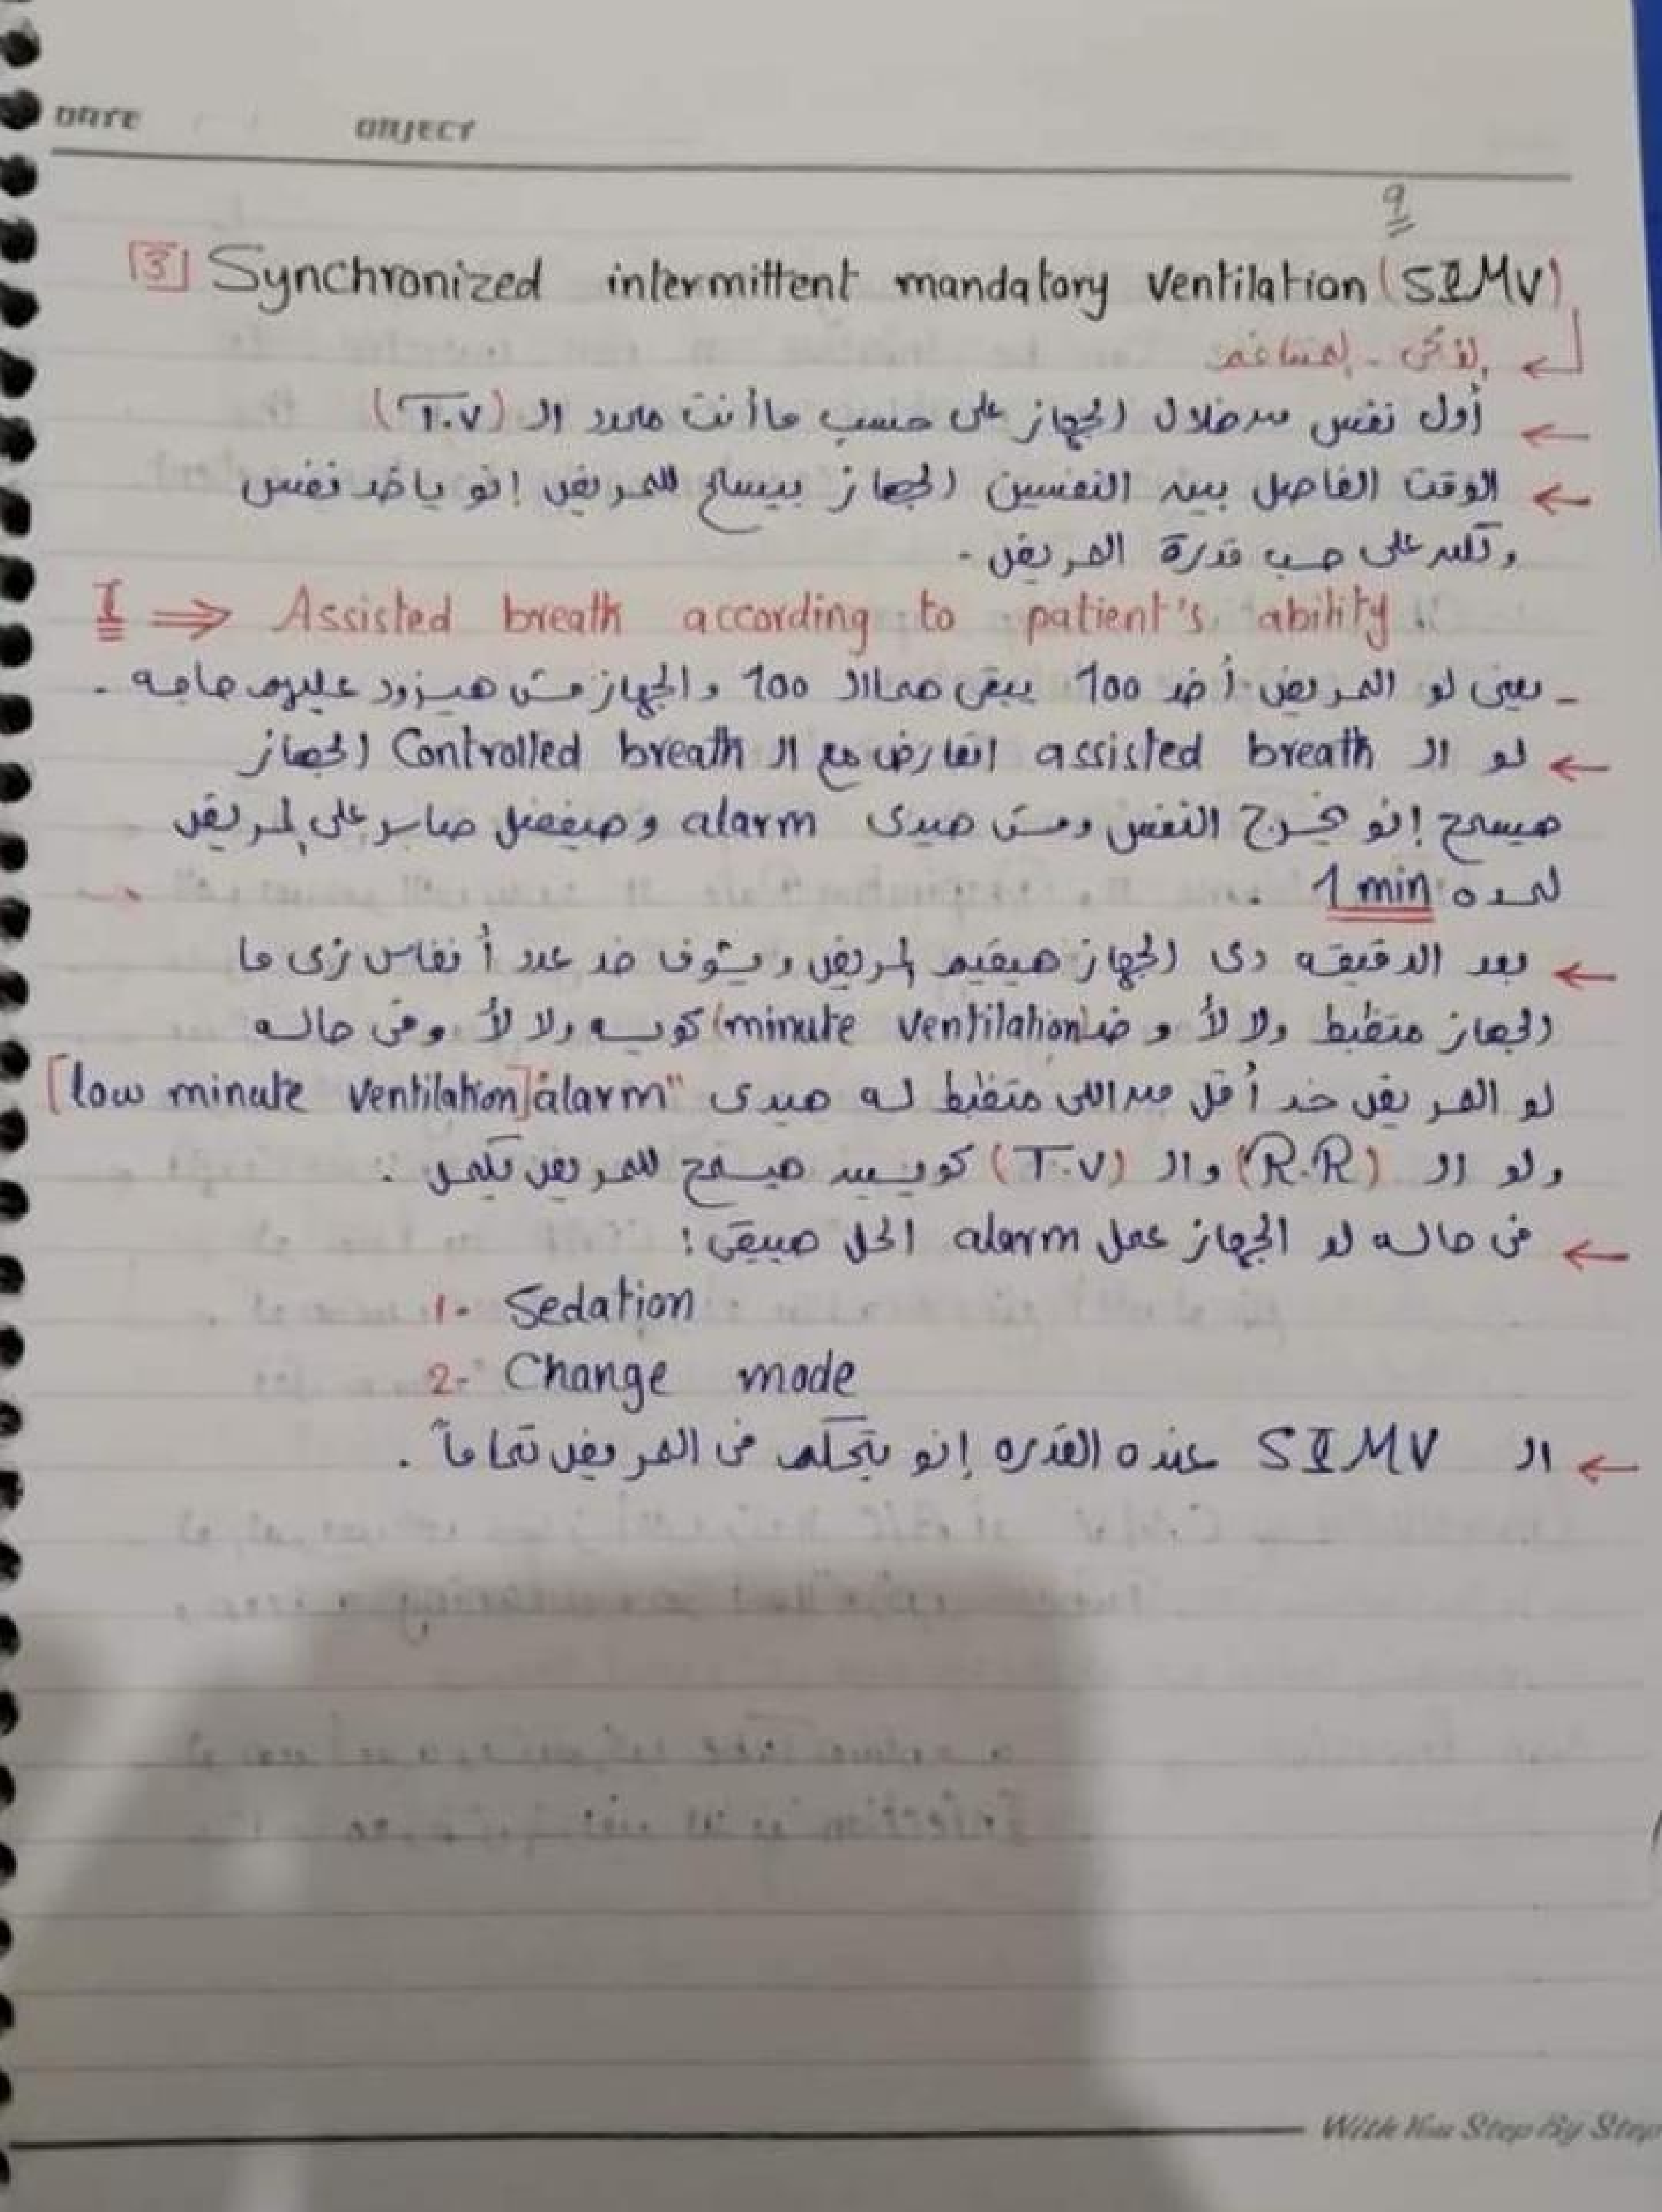 DATE OBJECT
9
[3] Synchronized intermittent mandatory ventilation (SIMV)
← أول نفس من خلال الجهاز على حسب ما أنت محدد ال (T.V)
← الوقت الفاصل بين النفسين الجهاز بيسمح للمريض إنو ياخد نفس
ولكن على حسب قدرة المريض .
I ⇒ Assisted breath according to patient's ability
- يعنى لو المريض أخد 100 يبقى هما ال 100 والجهاز مش هيزود عليهم حاجه .
← لو ال assisted breath اتعارض مع ال Controlled breath الجهاز
هيسمح إنو يخرج النفس ومش هيدى alarm وهيفضل صابر على المريض
لمده 1 min .
← بعد الدقيقه دى الجهاز هيقيم المريض ويشوف خد عدد أنفاس زى ما
الجهاز متظبط ولا لأ و خد (minute ventilation) كويسه ولا لأ وفى حاله
لو المريض خد أقل من اللى متظبط له هيدى "alarm" [low minute ventilation]
ولو ال (R.R) وال (T.V) كويسين هيسمح للمريض يكمل .
← فى حاله لو الجهاز عمل alarm الحل هيبقى :
1- Sedation
2- Change mode
← ال SIMV عنده القدره إنو يتحكم فى المريض تماماً .
With You Step By Step